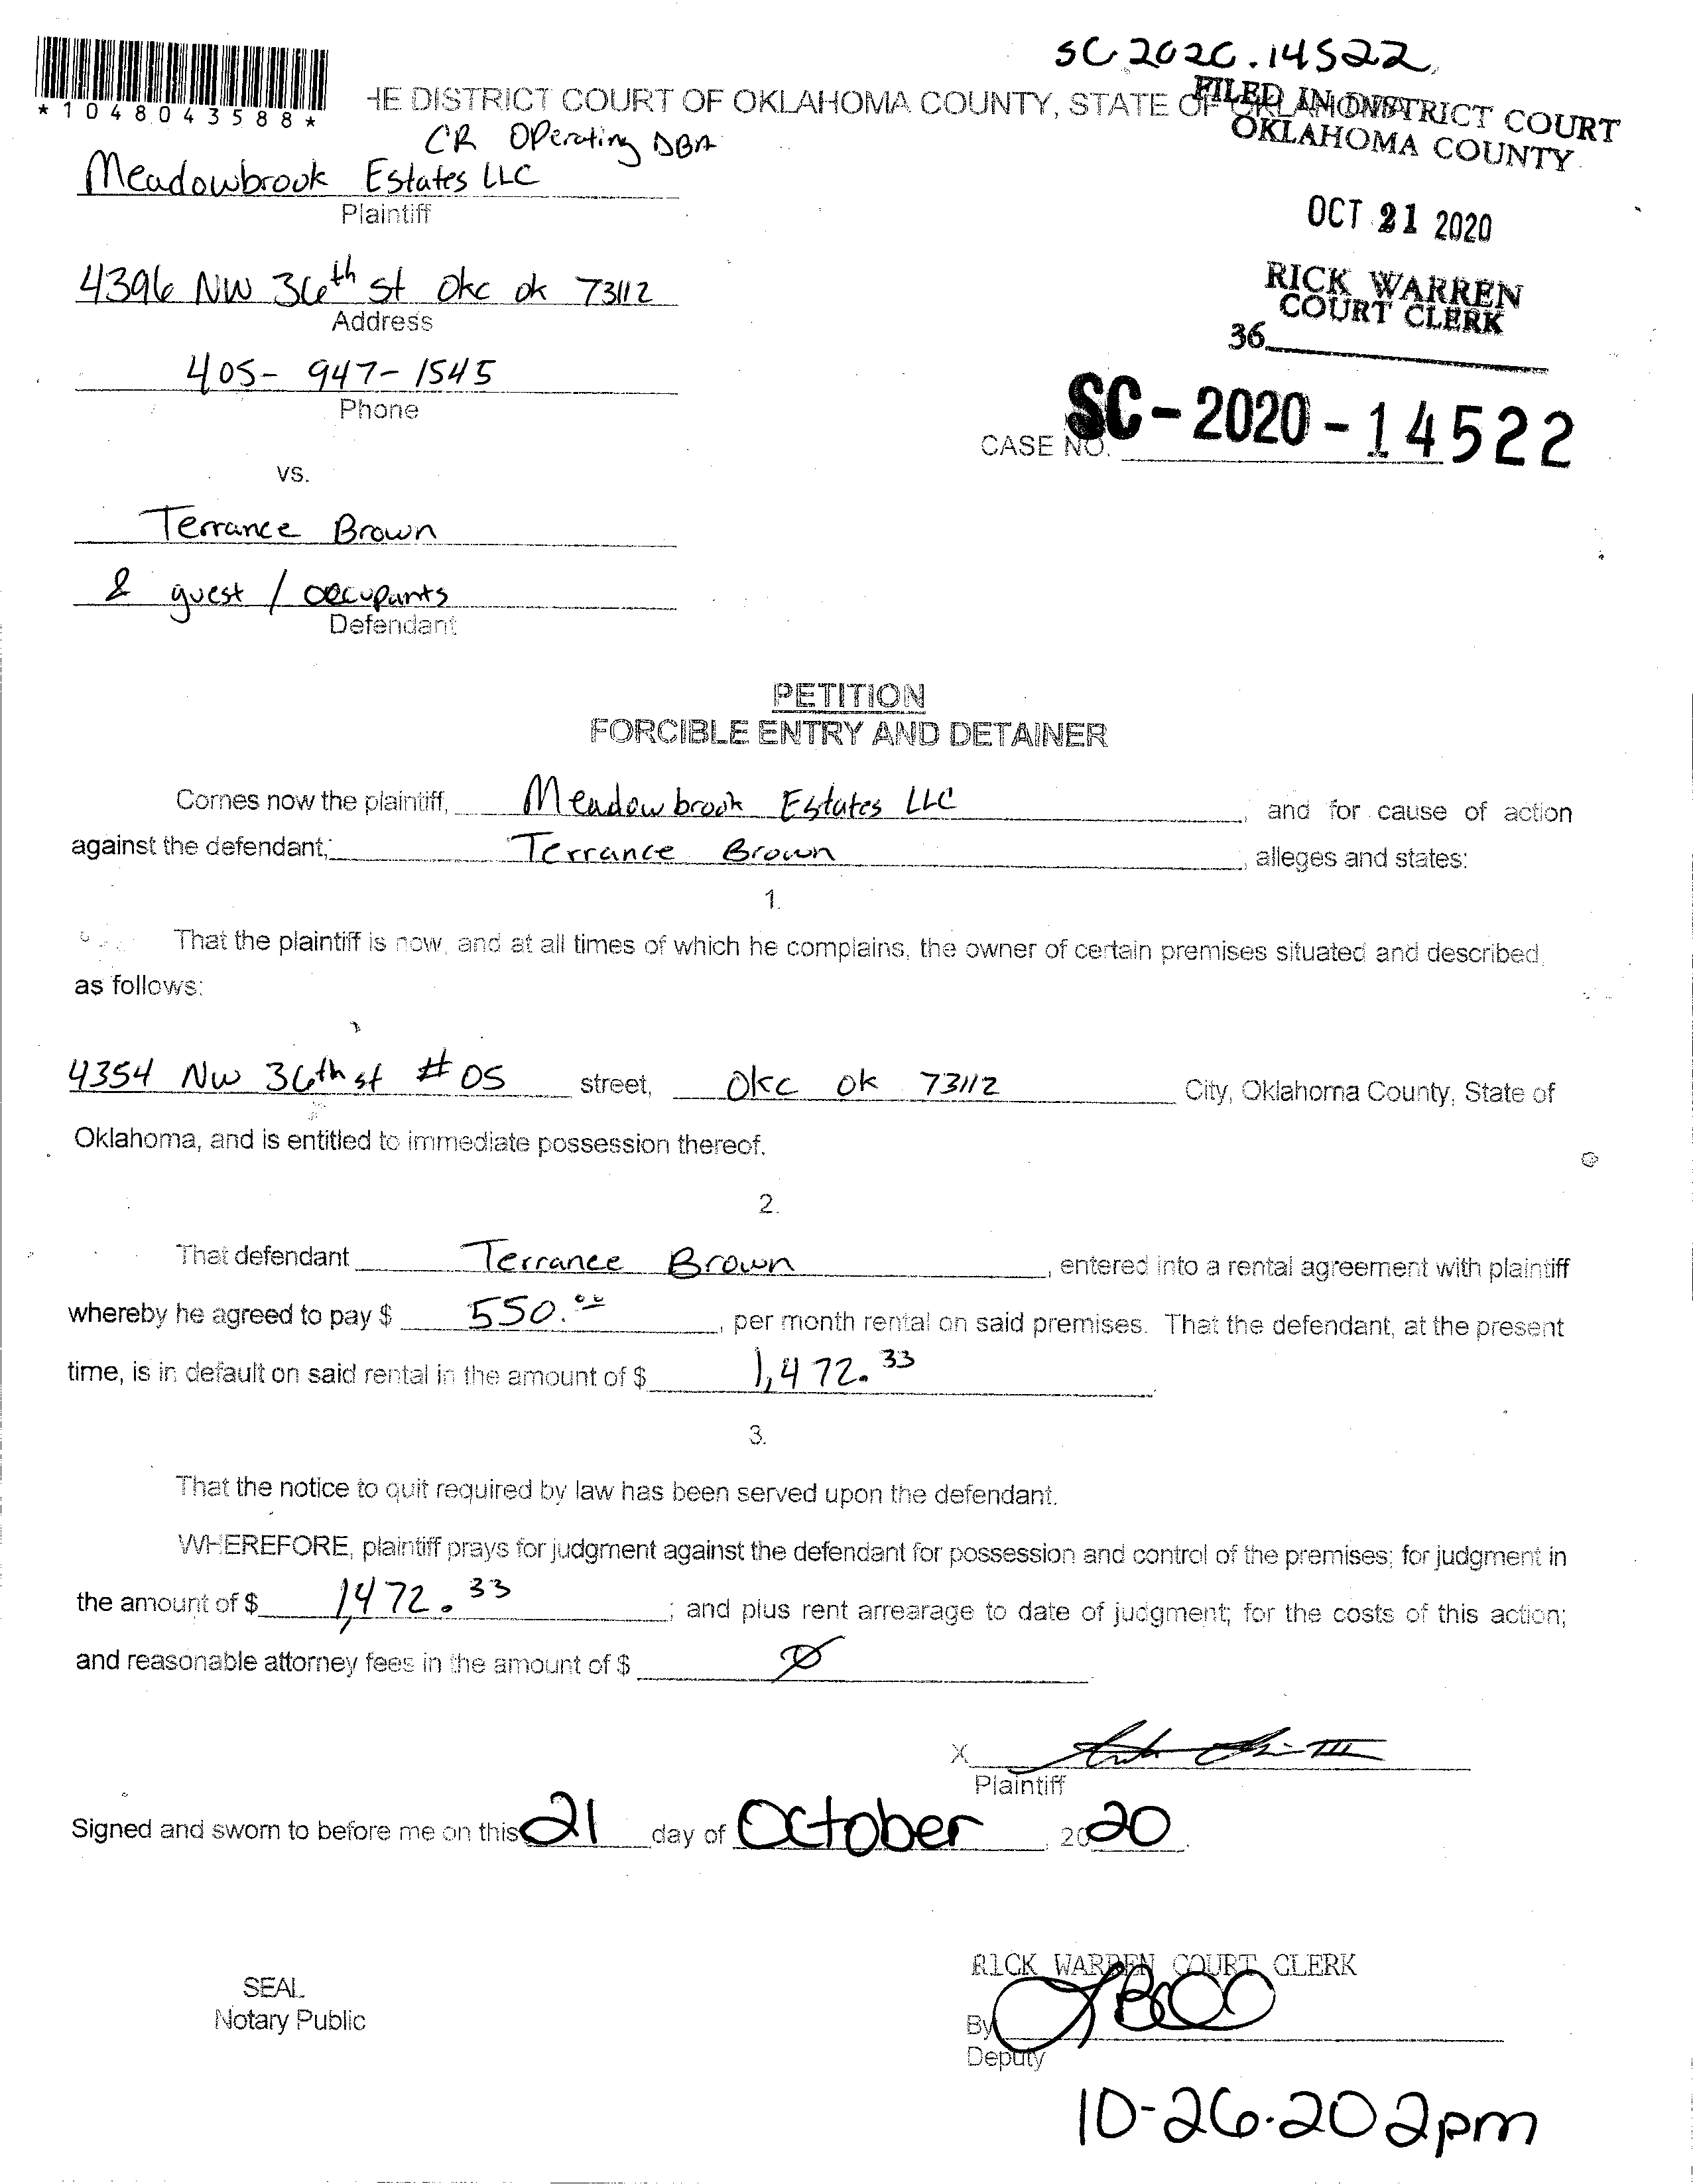 SC.2020.14522
*1048043588*
HE DISTRICT COURT OF OKLAHOMA COUNTY, STATE OF OKLAHOMA
FILED IN DISTRICT COURT
OKLAHOMA COUNTY
CR Operating DBA
Meadowbrook Estates LLC
Plaintiff
OCT 21 2020
4396 NW 36th st Okc ok 73112
Address
RICK WARREN
COURT CLERK
36
405- 947- 1545
Phone
CASE NO. SC-2020-14522
vs.
Terrance Brown
& guest / occupants
Defendant
PETITION
FORCIBLE ENTRY AND DETAINER
Comes now the plaintiff, Meadowbrook Estates LLC, and for cause of action
against the defendant; Terrance Brown, alleges and states:
1.
That the plaintiff is now, and at all times of which he complains, the owner of certain premises situated and described
as follows:
4354 NW 36th st #05 street, Okc ok 73112 City, Oklahoma County, State of
Oklahoma, and is entitled to immediate possession thereof.
2.
That defendant Terrance Brown, entered into a rental agreement with plaintiff
whereby he agreed to pay $ 550.00, per month rental on said premises. That the defendant, at the present
time, is in default on said rental in the amount of $ 1,472.33.
3.
That the notice to quit required by law has been served upon the defendant.
WHEREFORE, plaintiff prays for judgment against the defendant for possession and control of the premises; for judgment in
the amount of $ 1,472.33; and plus rent arrearage to date of judgment; for the costs of this action;
and reasonable attorney fees in the amount of $ Ø
X
Plaintiff
Signed and sworn to before me on this 21 day of October, 2020.
RICK WARREN COURT CLERK
SEAL
Notary Public
By
Deputy
10-26-20 2pm